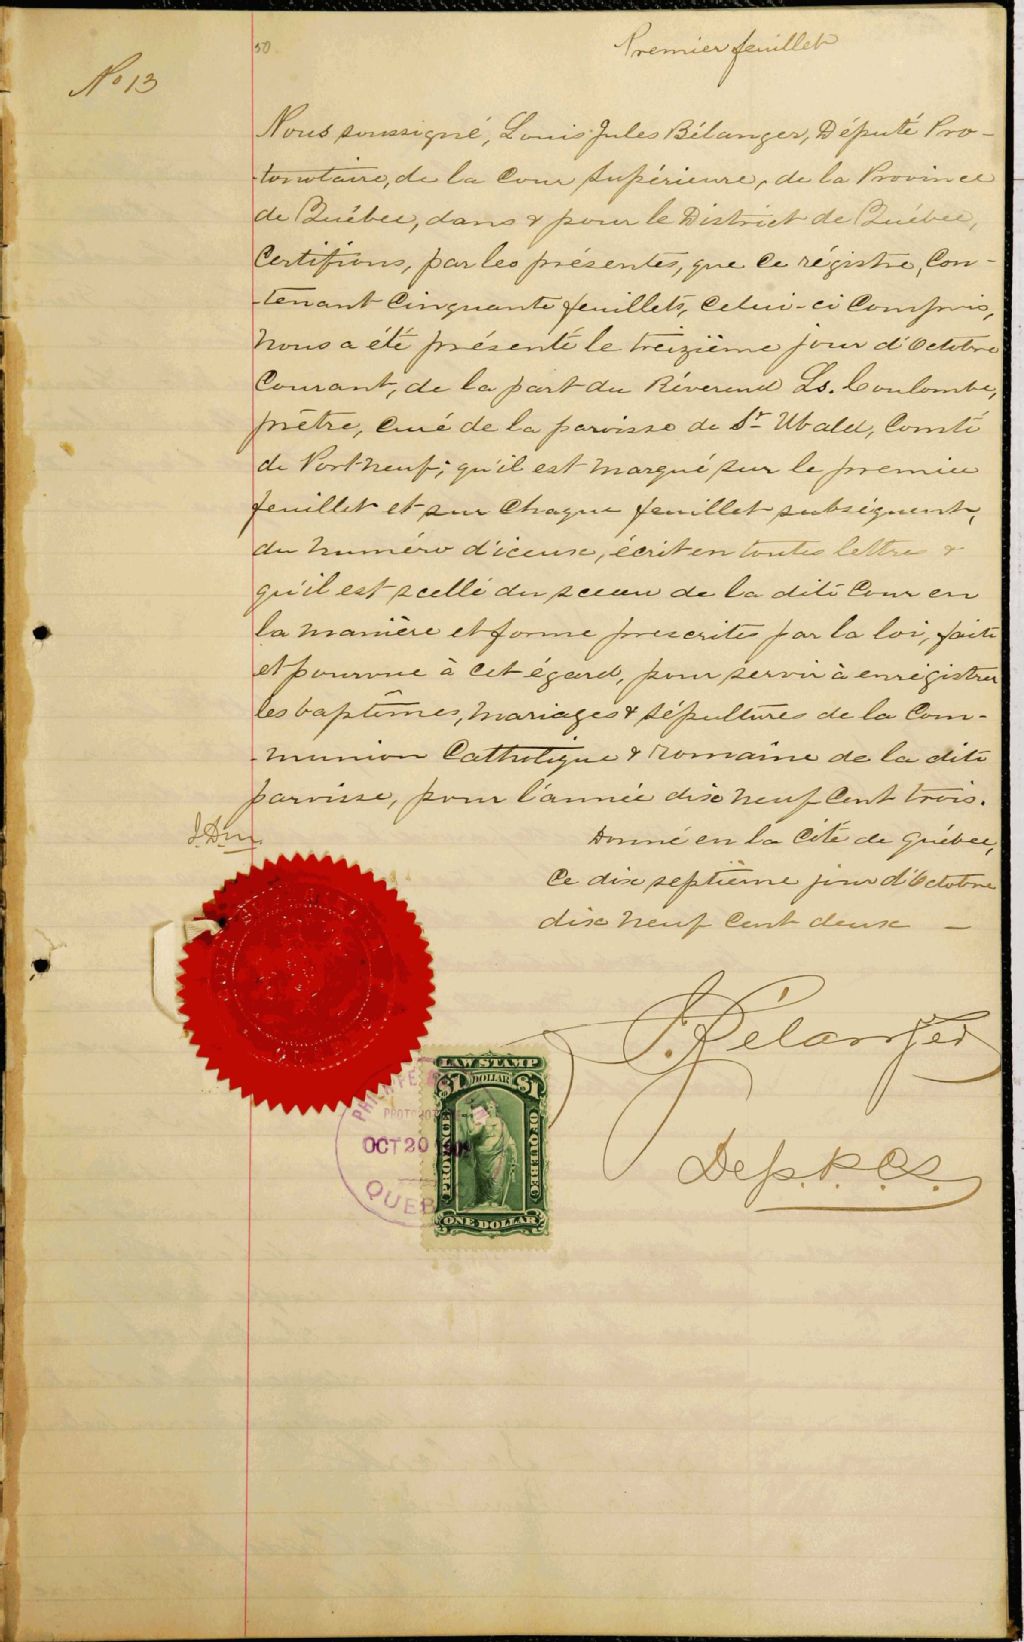 50
Premier feuillet
No 13
Nous soussigné, Louis Jules Bélanger, Député Pro-
-tonotaire, de la Cour Supérieure, de la Province
de Québec, dans & pour le District de Québec,
Certifions, par les présentes, que ce régistre, Con-
-tenant Cinquante feuillets, Celui-ci Compris,
Nous a été présenté le treizième jour d'Octobre
Courant, de la part du Révérend Ls. Coulombe,
prêtre, Curé de la paroisse de St Ubald, Comté
de Portneuf; qu'il est marqué sur le premier
feuillet et sur Chaque feuillet subséquent,
du numéro d'iceux, écrit en toutes lettres &
qu'il est scellé du sceau de la dite Cour en
la manière et forme prescrites par la loi, faite
et pourvue à cet égard, pour servir à enregistrer
les baptêmes, Mariages & sépultures de la Com-
-munion Catholique & romaine de la dite
paroisse, pour l'année dix neuf Cent trois.
Donné en la Cité de Québec,
Ce dix septième jour d'Octobre
dix neuf Cent deux —
J. Bélanger
Dep. P. C. S.
LAW STAMP
$1 DOLLAR $1
PROVINCE OF QUEBEC
ONE DOLLAR
OCT 20
QUEB